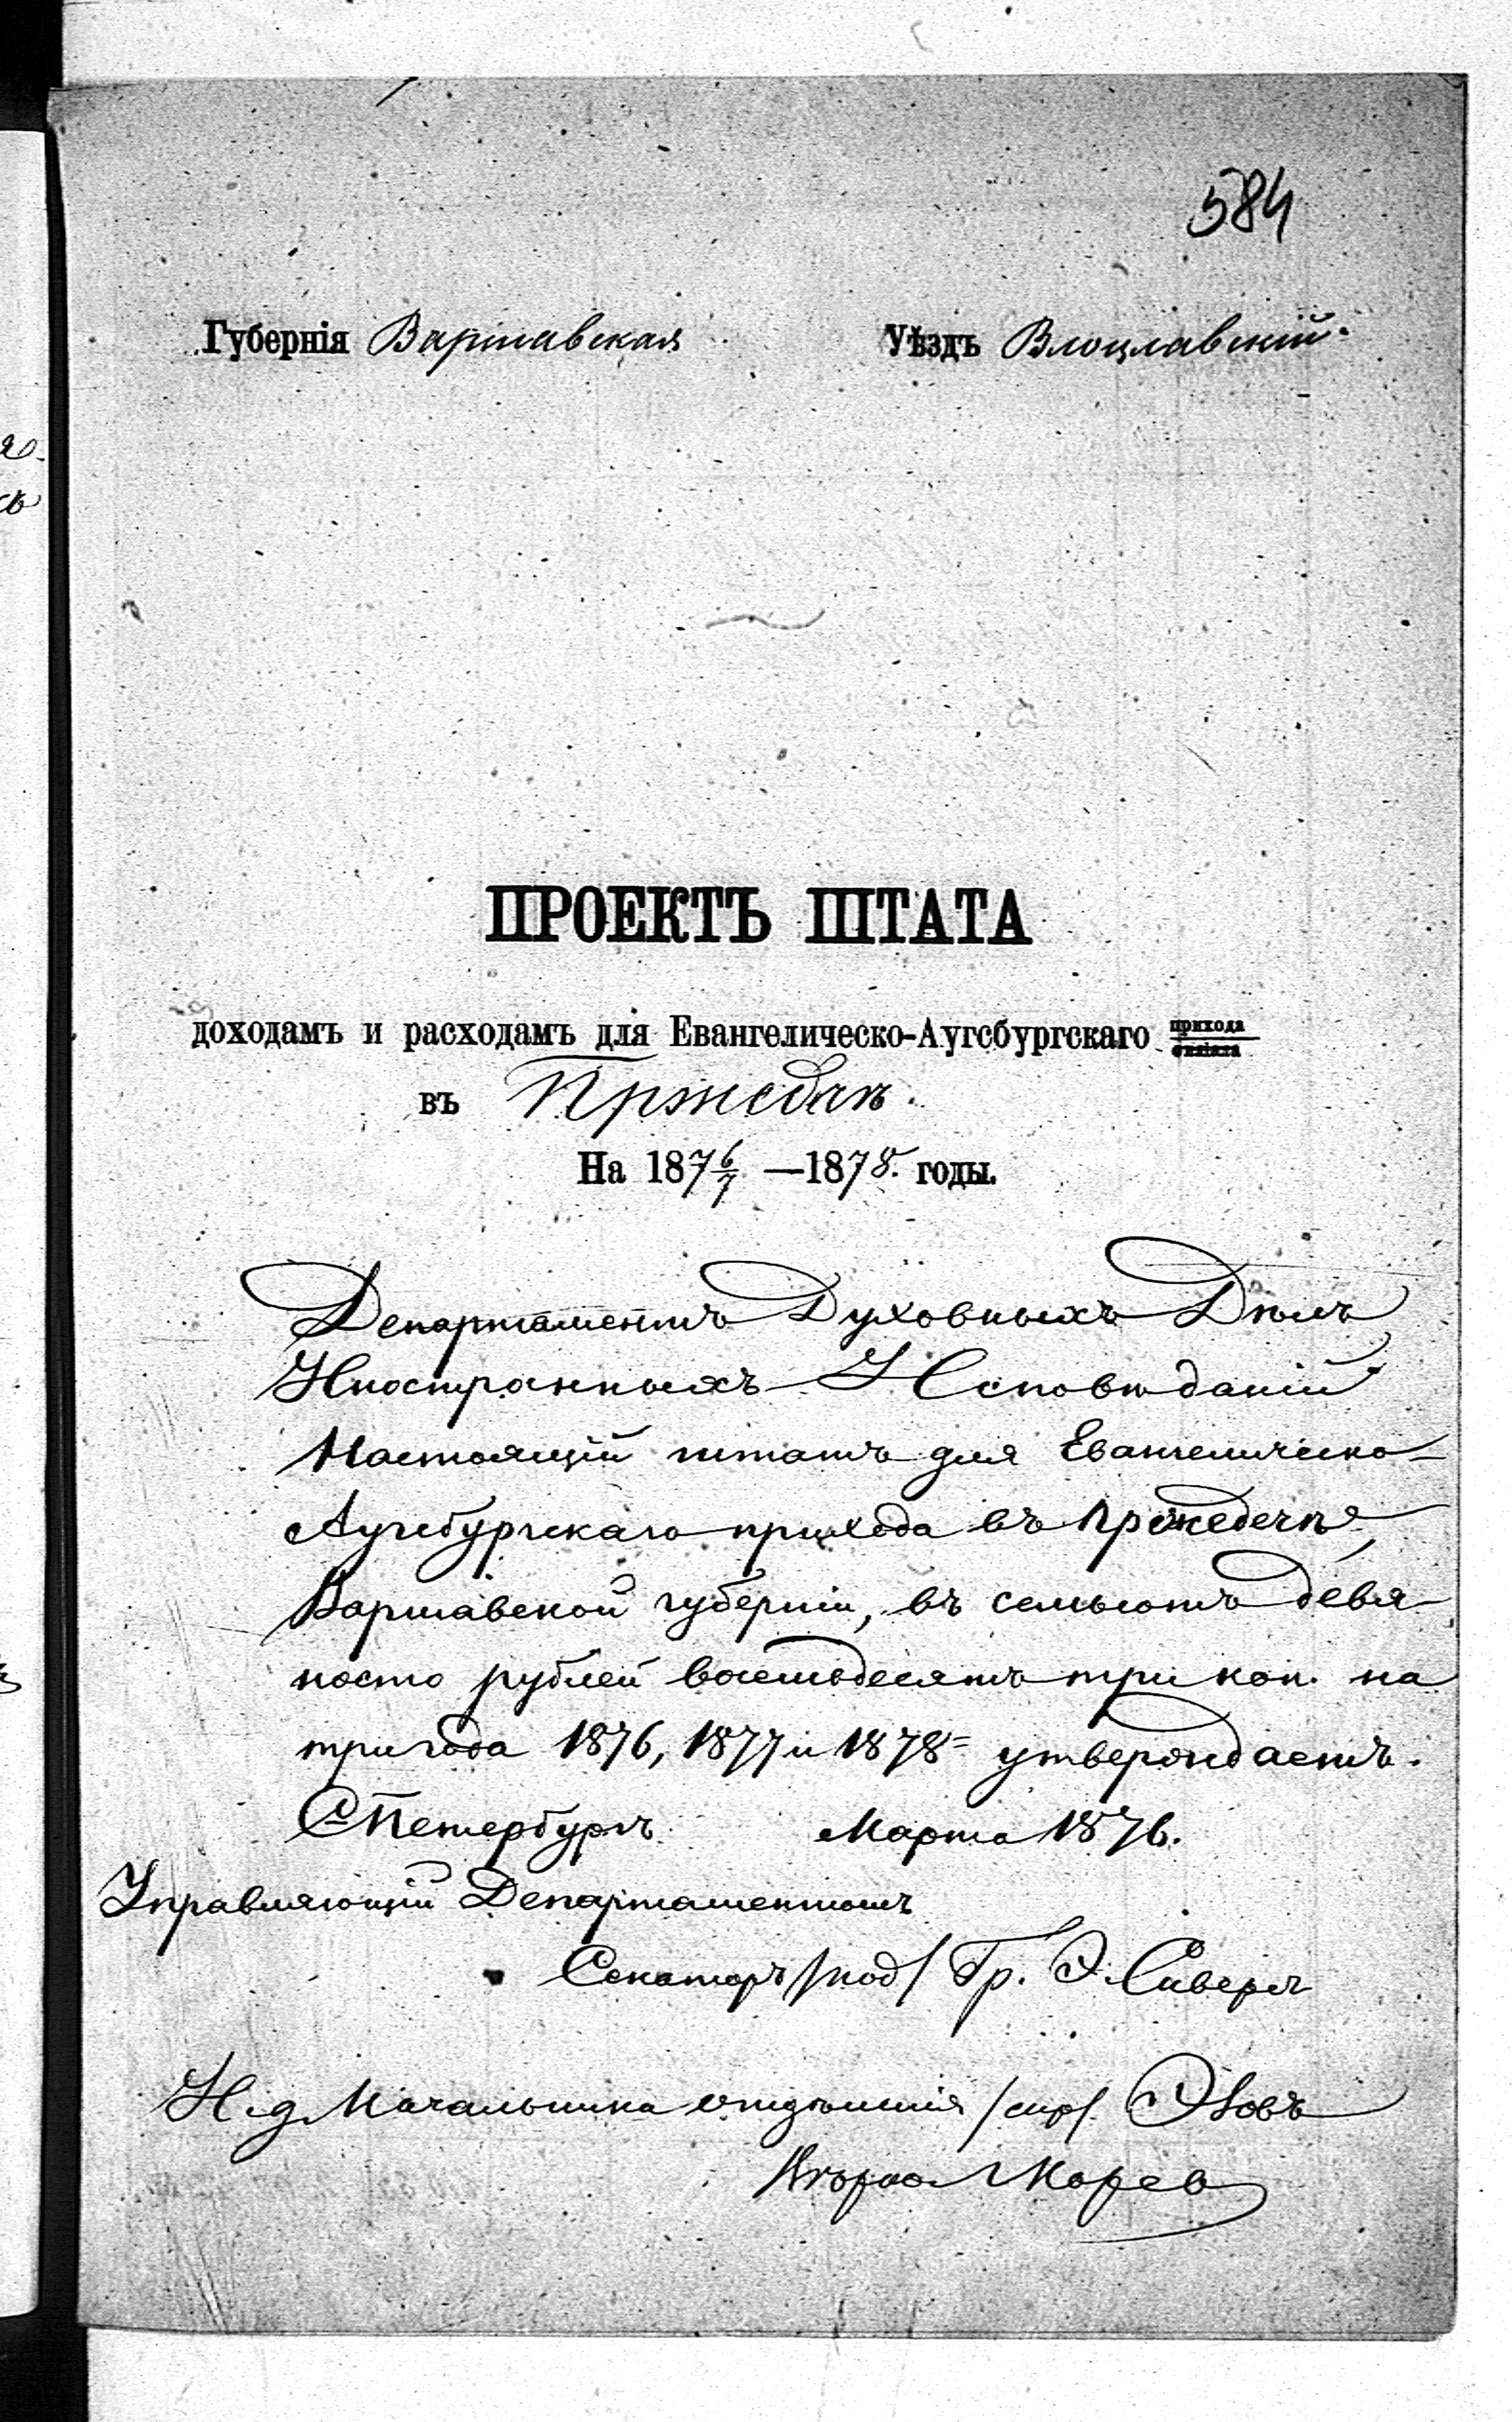 584
Губернія Варшавская
Уѣздъ Влоцлавскій
ПРОЕКТЪ ШТАТА
доходамъ и расходамъ для Евангелическо-Аугсбургскаго прихода
филіала
въ Пржедечѣ.
На 1876/7 —1878. годы.
Департаментъ Духовныхъ Дѣлъ
Иностранныхъ Исповѣданій
Настоящій штатъ для Евангелическо-
Аугсбургскаго прихода въ Пржедечѣ,
Варшавской губерніи, въ семьсотъ девя-
носто рублей восемьдесятъ три коп. на
три года 1876, 1877 и 1878= утверждаетъ.
СПетербургъ Марта 1876.
Управляющій Департаментомъ
Сенаторъ /под/ Гр. Э. Сиверсъ
И. д. Начальника отдѣленія /скр/.